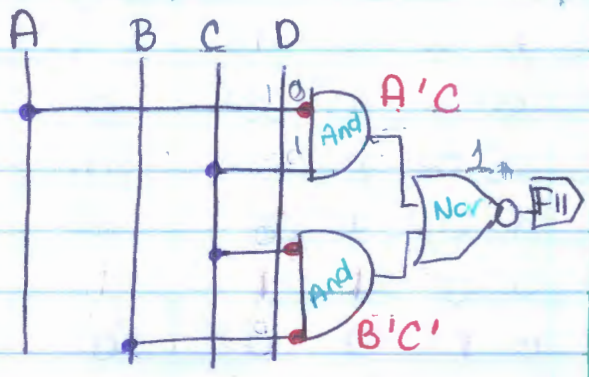 A B C D
1 0 A'C
And
1
1
Nor F11
And
B'C'